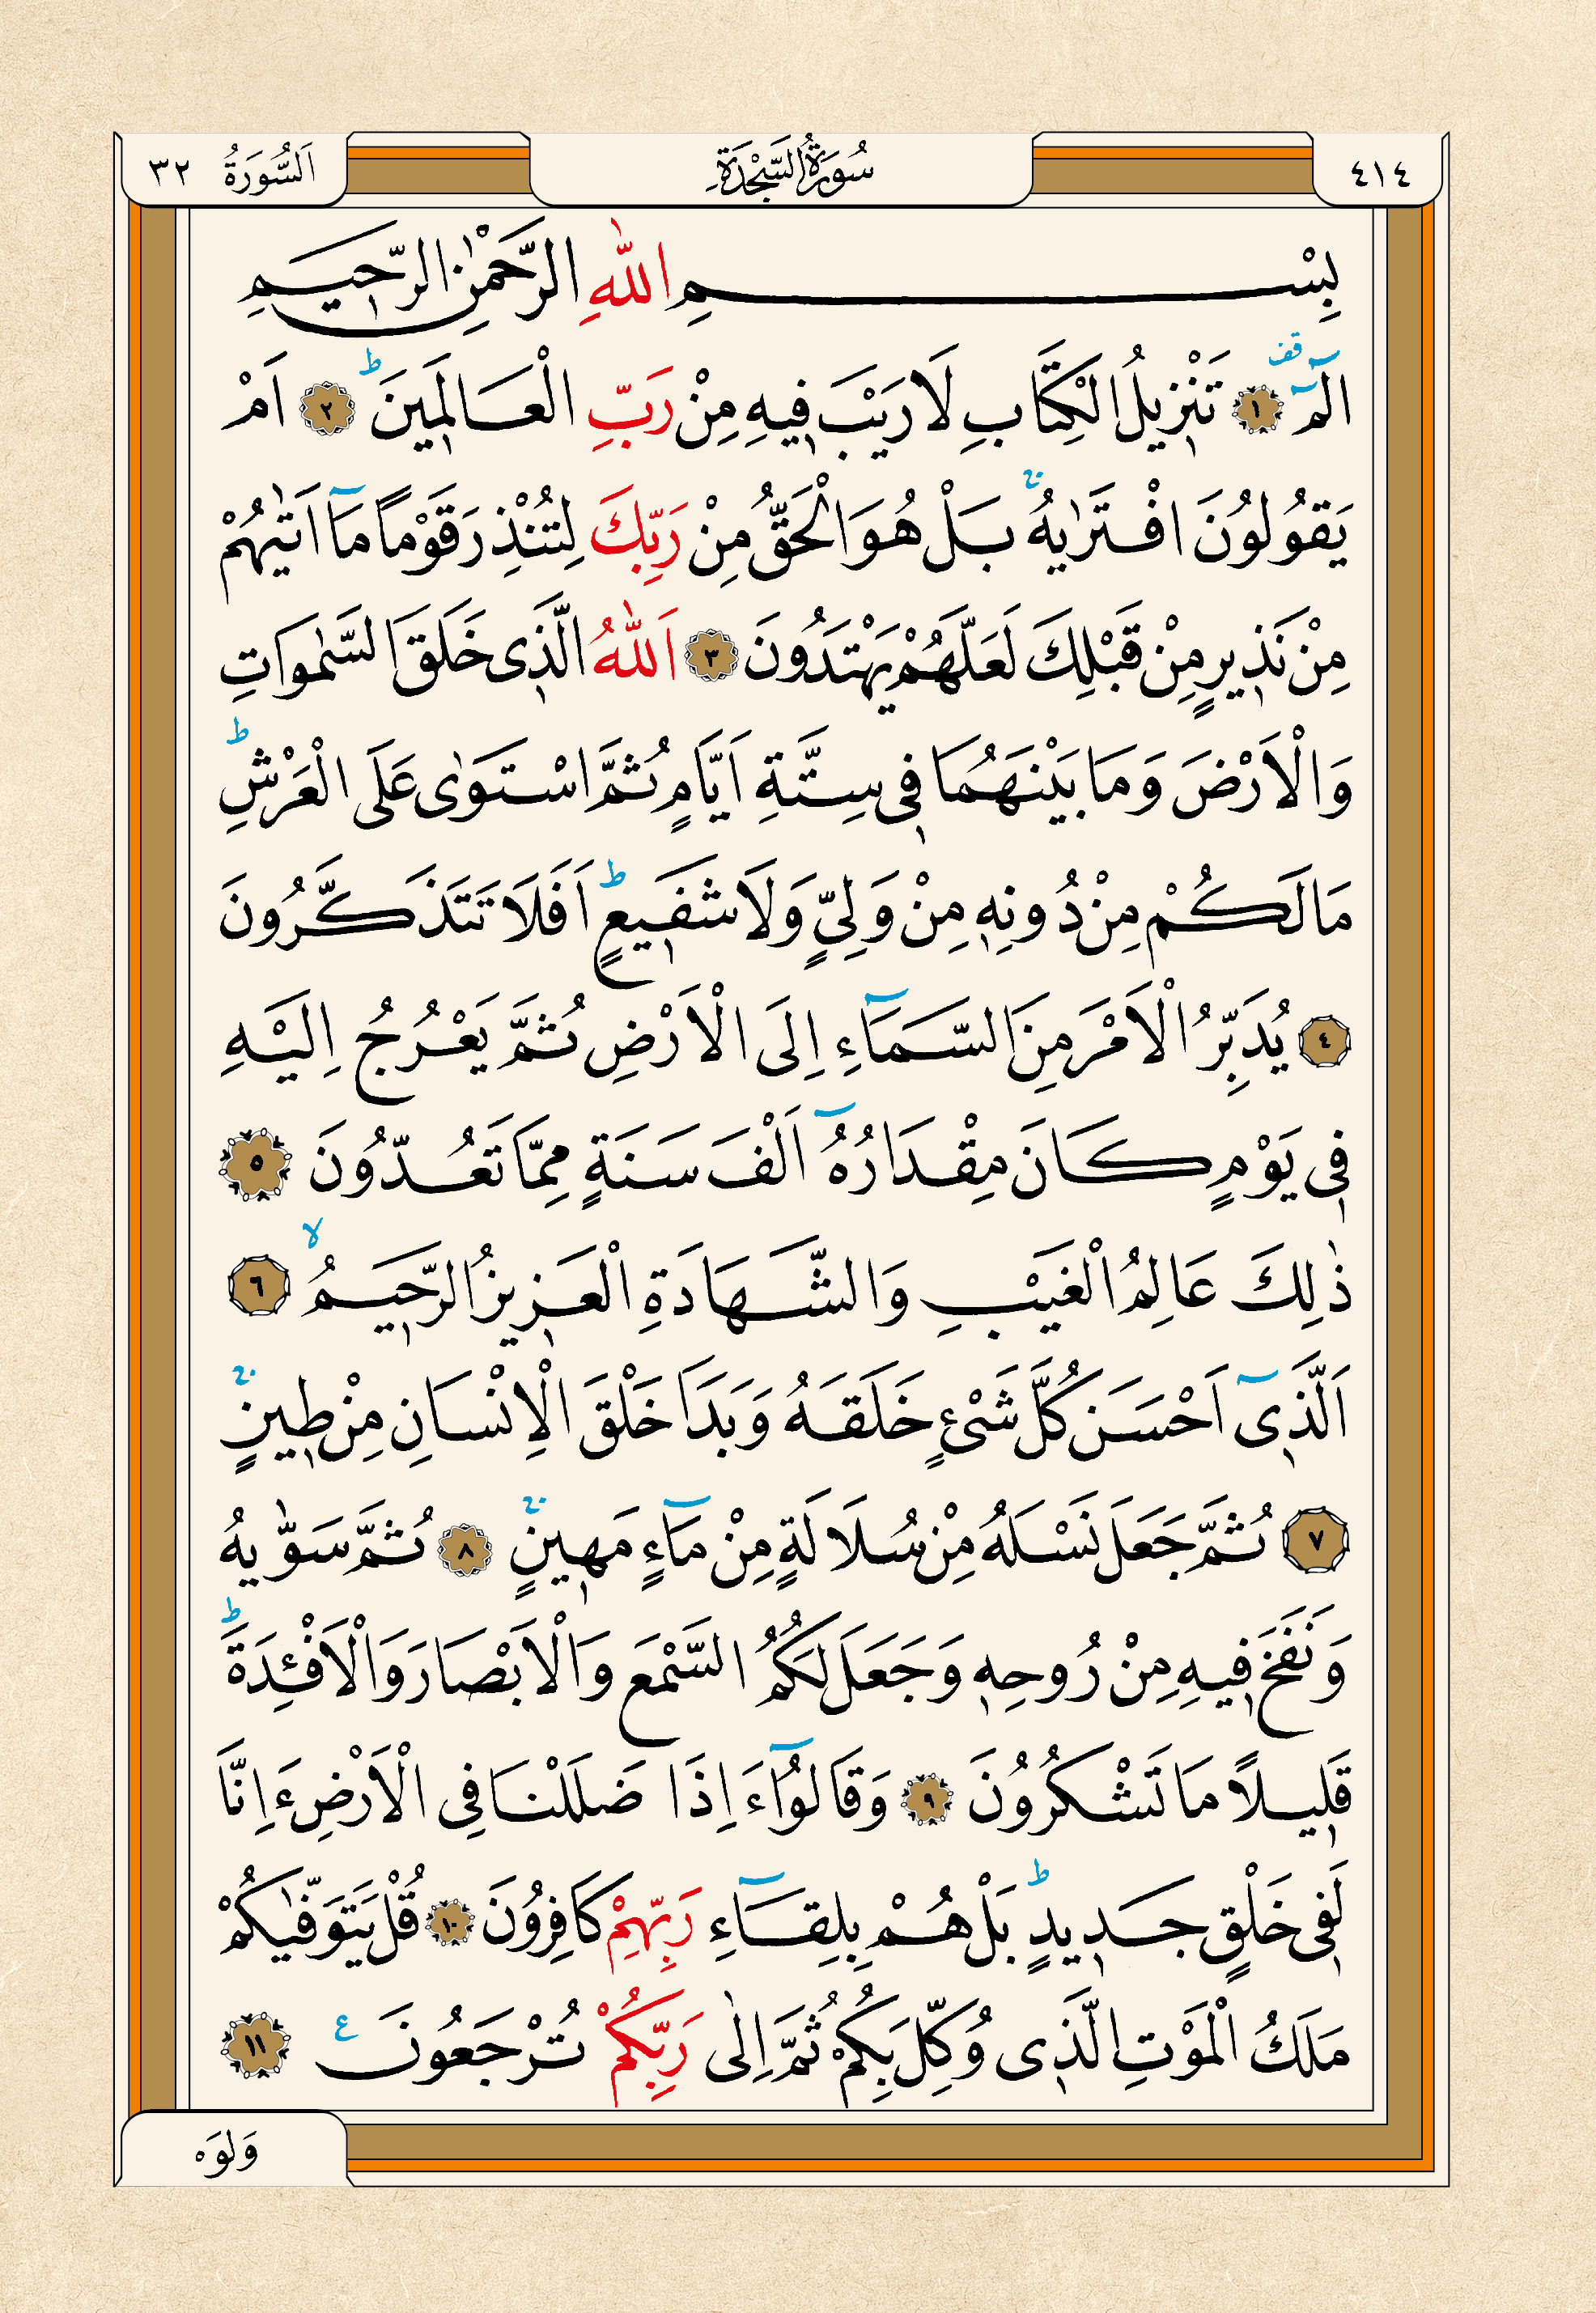 ٤١٤ سُورَةُ السَّجْدَةِ اَلسُّورَةُ ٣٢
بِسْمِ اللّٰهِ الرَّحْمٰنِ الرَّحٖيمِ
الٓمٓ قف ١ تَنْزٖيلُ الْكِتَابِ لَا رَيْبَ فٖيهِ مِنْ رَبِّ الْعَالَمٖينَ ط ٢ اَمْ
يَقُولُونَ افْتَرٰيهُ ج بَلْ هُوَ الْحَقُّ مِنْ رَبِّكَ لِتُنْذِرَ قَوْمًا مَٓا اَتٰيهُمْ
مِنْ نَذٖيرٍ مِنْ قَبْلِكَ لَعَلَّهُمْ يَهْتَدُونَ ٣ اَللّٰهُ الَّذٖى خَلَقَ السَّمٰوَاتِ
وَالْاَرْضَ وَمَا بَيْنَهُمَا فٖى سِتَّةِ اَيَّامٍ ثُمَّ اسْتَوٰى عَلَى الْعَرْشِ ط
مَا لَكُمْ مِنْ دُونِهٖ مِنْ وَلِىٍّ وَلَا شَفٖيعٍ ط اَفَلَا تَتَذَكَّرُونَ
٤ يُدَبِّرُ الْاَمْرَ مِنَ السَّمَٓاءِ اِلَى الْاَرْضِ ثُمَّ يَعْرُجُ اِلَيْهِ
فٖى يَوْمٍ كَانَ مِقْدَارُهُٓ اَلْفَ سَنَةٍ مِمَّا تَعُدُّونَ ٥
ذٰلِكَ عَالِمُ الْغَيْبِ وَالشَّهَادَةِ الْعَزٖيزُ الرَّحٖيمُ لا ٦
اَلَّذٖٓى اَحْسَنَ كُلَّ شَىْءٍ خَلَقَهُ وَبَدَاَ خَلْقَ الْاِنْسَانِ مِنْ طٖينٍ ج
٧ ثُمَّ جَعَلَ نَسْلَهُ مِنْ سُلَالَةٍ مِنْ مَٓاءٍ مَهٖينٍ ج ٨ ثُمَّ سَوّٰيهُ
وَنَفَخَ فٖيهِ مِنْ رُوحِهٖ وَجَعَلَ لَكُمُ السَّمْعَ وَالْاَبْصَارَ وَالْاَفْئِدَةَ ط
قَلٖيلًا مَا تَشْكُرُونَ ٩ وَقَالُٓوا ءَاِذَا ضَلَلْنَا فِى الْاَرْضِ ءَاِنَّا
لَفٖى خَلْقٍ جَدٖيدٍ ط بَلْ هُمْ بِلِقَٓاءِ رَبِّهِمْ كَافِرُونَ ١٠ قُلْ يَتَوَفّٰيكُمْ
مَلَكُ الْمَوْتِ الَّذٖى وُكِّلَ بِكُمْ ثُمَّ اِلٰى رَبِّكُمْ تُرْجَعُونَ ع ١١
وَلَوْ